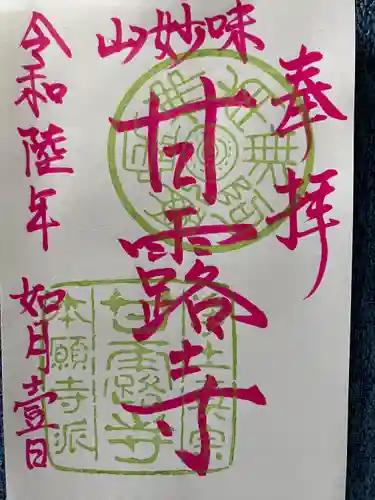 奉拝
味妙山
甘露寺
令和陸年
如月壹日
甘露寺
本願寺派